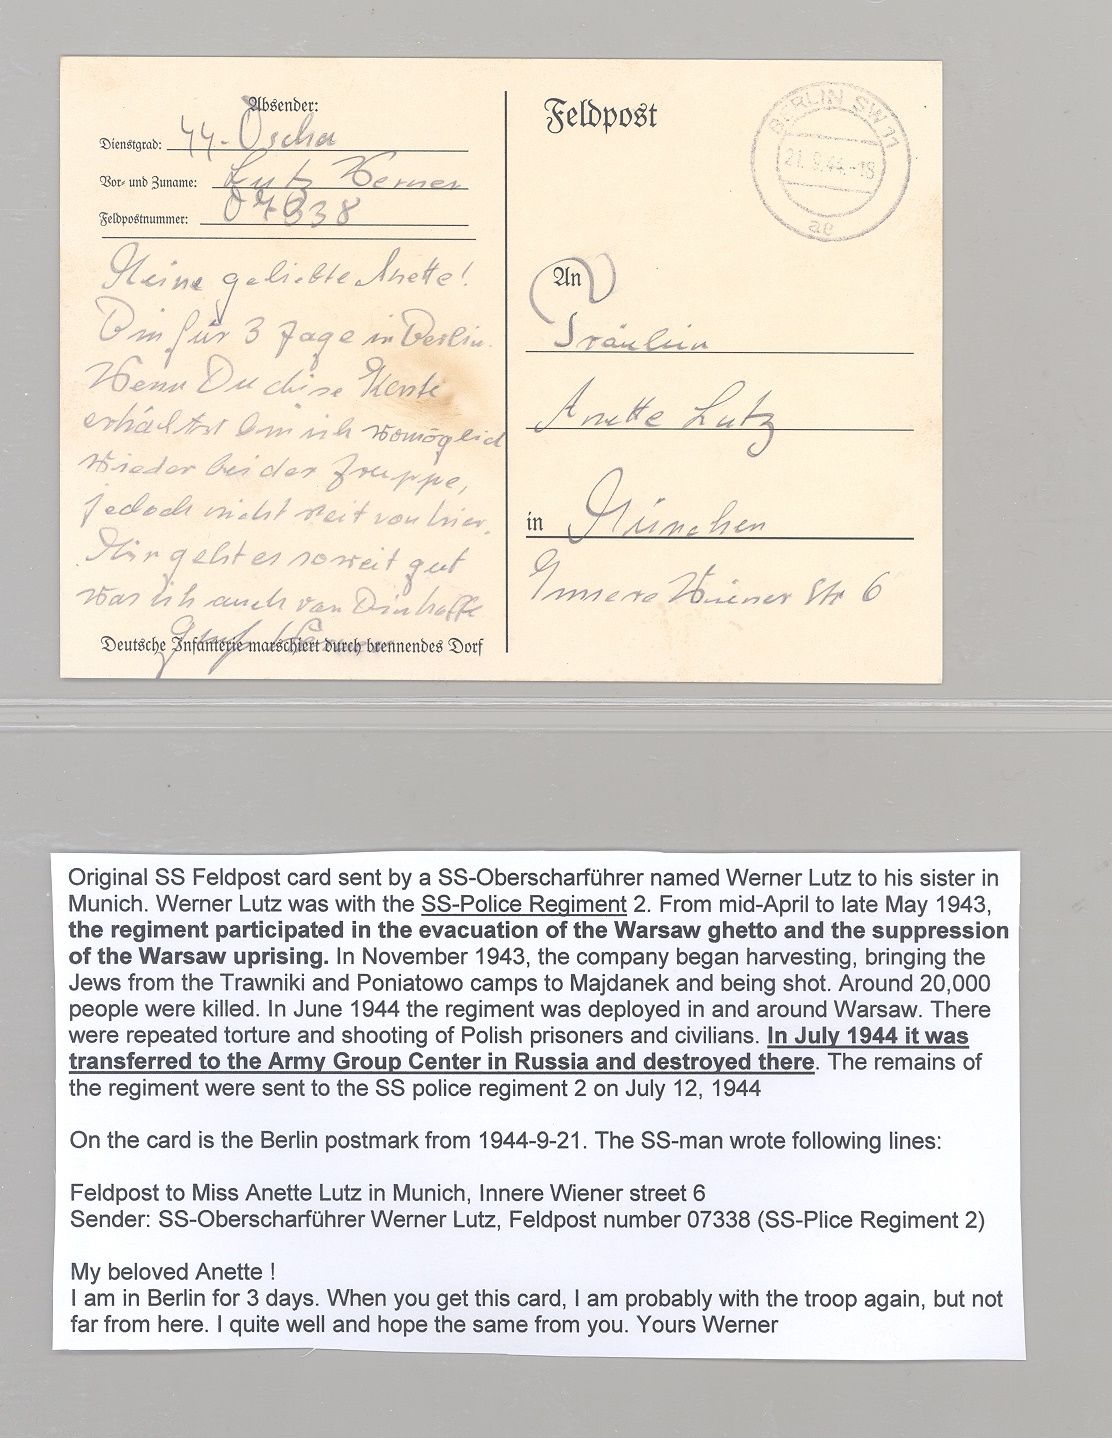 Absender:
Dienstgrad: SS-Oscha
Vor- und Zuname: Lutz Werner
Feldpostnummer: 07338
Meine geliebte Anette!
Bin für 3 Tage in Berlin.
Wenn Du diese Karte
erhältst bin ich womöglich
wieder bei der Truppe,
jedoch nicht weit von hier.
Mir geht es soweit gut
was ich auch von Dir hoffe
Gruß Werner
Deutsche Infanterie marschiert durch brennendes Dorf
Feldpost
BERLIN SW 11
21.9.44.-18
ae
An
Fräulein
Anette Lutz
in München
Innere Wiener Str 6
Original SS Feldpost card sent by a SS-Oberscharführer named Werner Lutz to his sister in
Munich. Werner Lutz was with the SS-Police Regiment 2. From mid-April to late May 1943,
the regiment participated in the evacuation of the Warsaw ghetto and the suppression
of the Warsaw uprising. In November 1943, the company began harvesting, bringing the
Jews from the Trawniki and Poniatowo camps to Majdanek and being shot. Around 20,000
people were killed. In June 1944 the regiment was deployed in and around Warsaw. There
were repeated torture and shooting of Polish prisoners and civilians. In July 1944 it was
transferred to the Army Group Center in Russia and destroyed there. The remains of
the regiment were sent to the SS police regiment 2 on July 12, 1944
On the card is the Berlin postmark from 1944-9-21. The SS-man wrote following lines:
Feldpost to Miss Anette Lutz in Munich, Innere Wiener street 6
Sender: SS-Oberscharführer Werner Lutz, Feldpost number 07338 (SS-Plice Regiment 2)
My beloved Anette !
I am in Berlin for 3 days. When you get this card, I am probably with the troop again, but not
far from here. I quite well and hope the same from you. Yours Werner